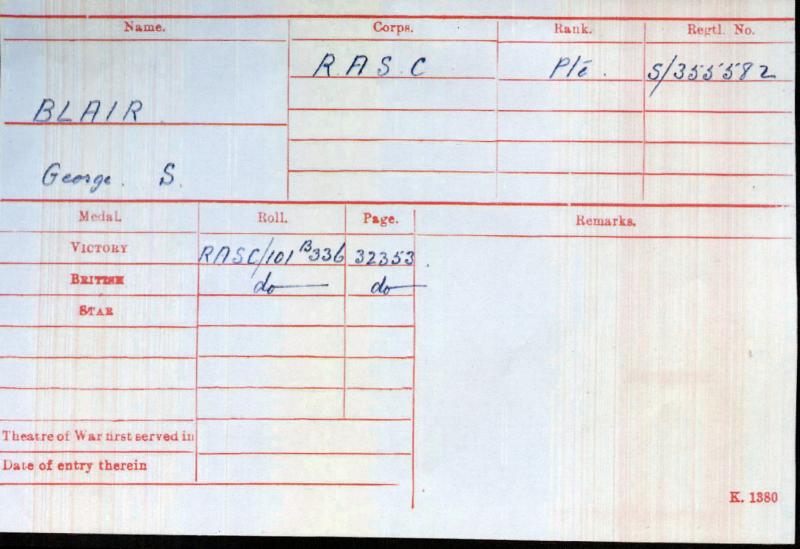 Name. Corps. Rank. Regtl. No.
R.A.S.C Pte. S/355582
BLAIR
George. S.
Medal. Roll. Page. Remarks.
VICTORY RASC/101 B336 32353.
BRITISH do do
STAR
Theatre of War first served in
Date of entry therein
K. 1380